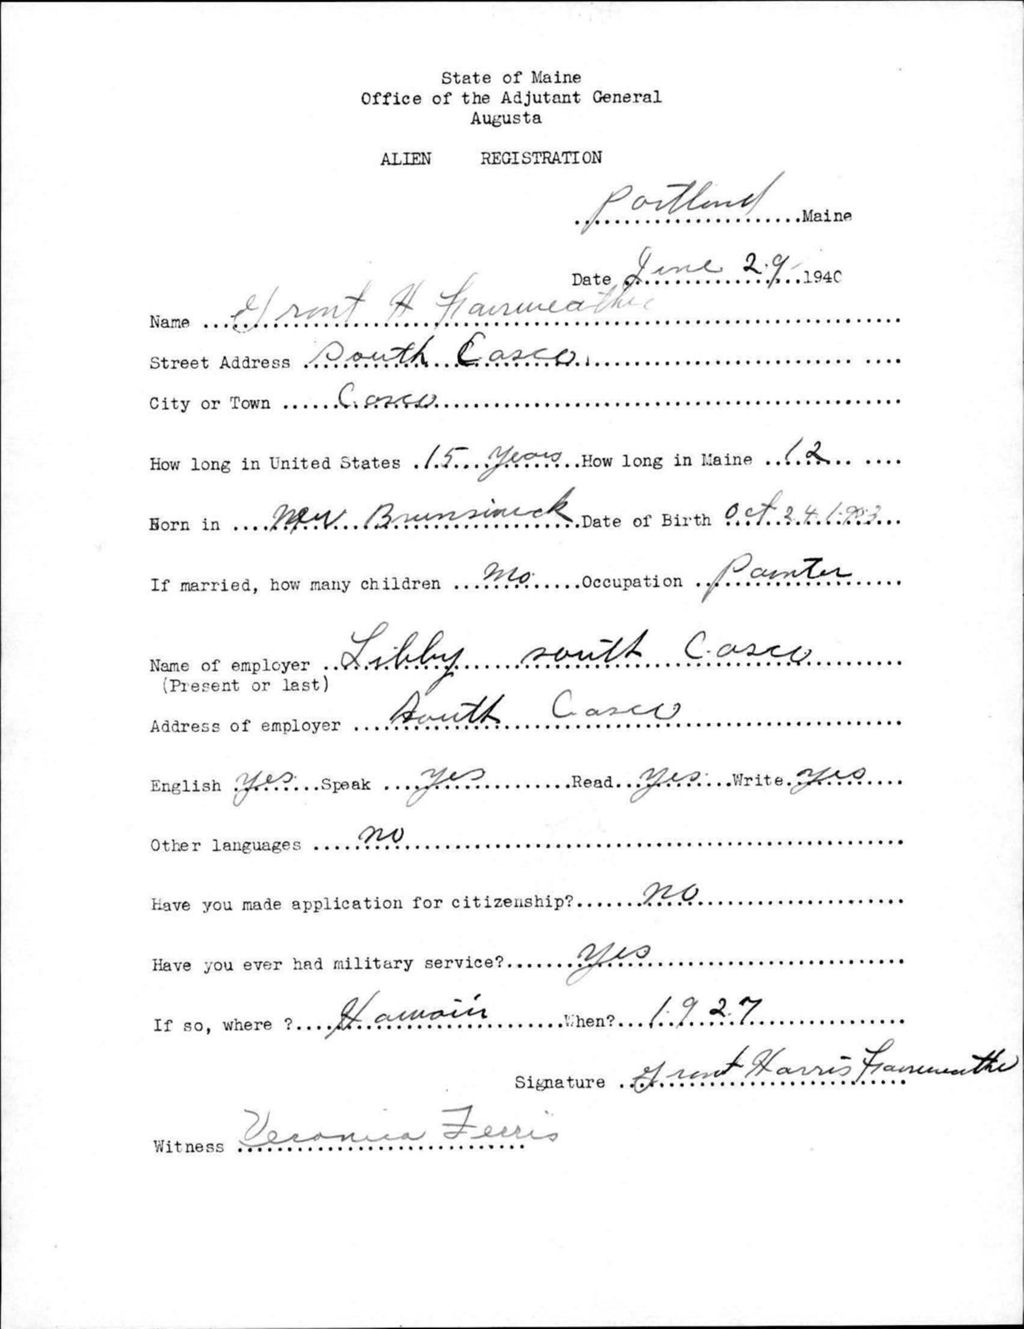 State of Maine
Office of the Adjutant General
Augusta
ALIEN REGISTRATION
Portland Maine
Date June 29 1940
Name Grant H Fairweather
Street Address South Casco
City or Town Casco
How long in United States 15 years How long in Maine 12
Born in New Brunsineck Date of Birth Oct 24 1903
If married, how many children No Occupation Painter
Name of employer Libby south Casco
(Present or last)
Address of employer South Casco
English yes Speak yes Read yes Write yes
Other languages no
Have you made application for citizenship? no
Have you ever had military service? yes
If so, where ? Hawaii When? 1927
Signature Grant Harris Fairweather
Witness Veronica Ferris